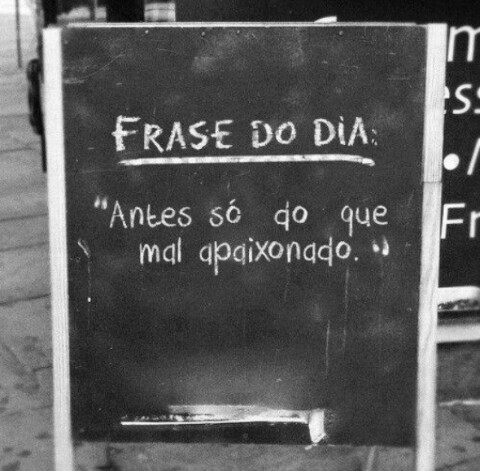 FRASE DO DIA:
"Antes só do que
mal apaixonado."